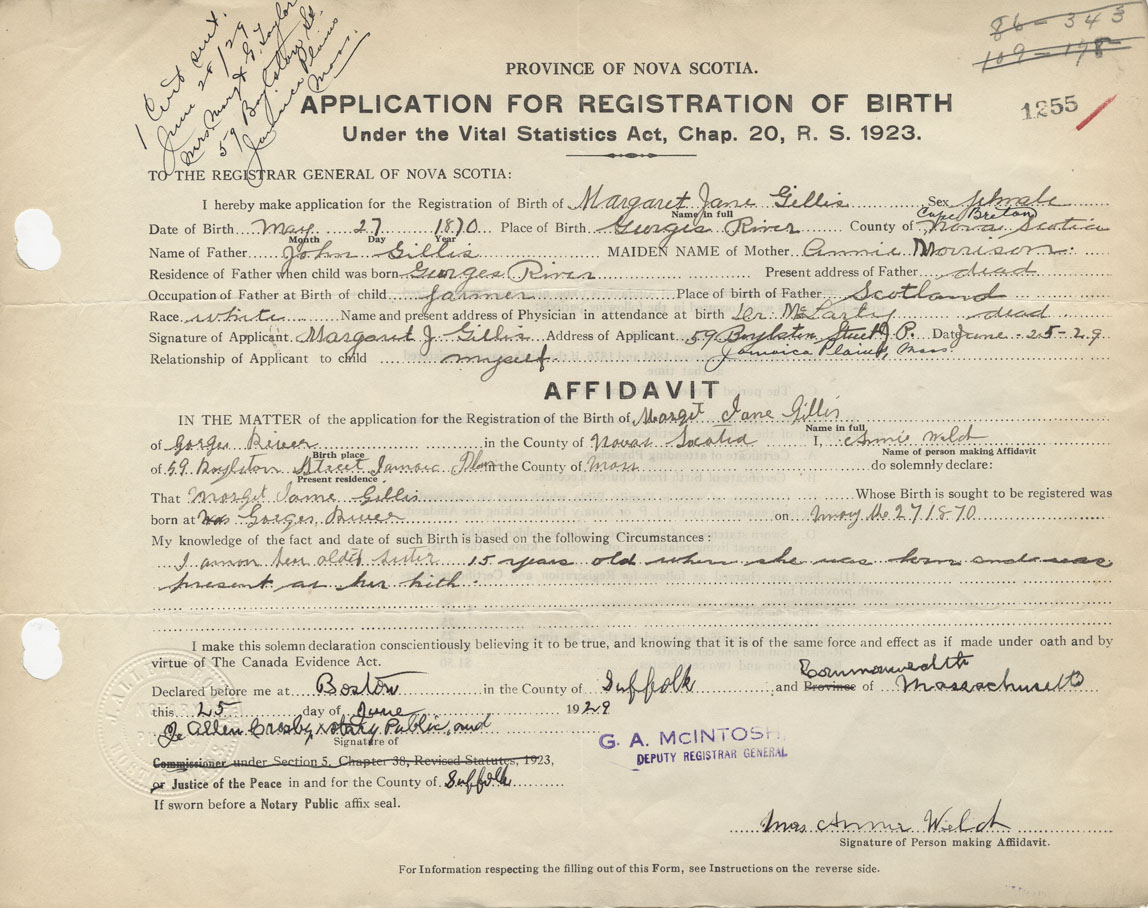 1 Cert sent.
June 28/29
Mrs Margt G. Taylor
59 Boylston St.
Jamaica Plains
Mass.
86-343
109-178
PROVINCE OF NOVA SCOTIA.
APPLICATION FOR REGISTRATION OF BIRTH
1255
Under the Vital Statistics Act, Chap. 20, R. S. 1923.
TO THE REGISTRAR GENERAL OF NOVA SCOTIA:
I hereby make application for the Registration of Birth of Margaret Jane Gillis Sex female
Name in full
Cape Breton
Date of Birth May 27 1870 Place of Birth Georges River County of Nova Scotia
Month Day Year
Name of Father John Gillis MAIDEN NAME of Mother Annie Morrison
Residence of Father when child was born Georges River Present address of Father dead
Occupation of Father at Birth of child farmer Place of birth of Father Scotland
Race white Name and present address of Physician in attendance at birth Dr. McCarty dead
Signature of Applicant Margaret J Gillis Address of Applicant 59 Boylston Street J. P. Date June - 25 - 29
Jamaica Plains, Mass.
Relationship of Applicant to child myself
AFFIDAVIT
IN THE MATTER of the application for the Registration of the Birth of Margit Jane Gillis
Name in full
of Gorges River in the County of Novas Scotia I, Annie Welch
Birth place
Name of person making Affidavit
of 59 Boylston Street Jamaic Plain the County of Mass do solemnly declare:
Present residence
That Margit Jame Gillis Whose Birth is sought to be registered was
born at Gorges River on May the 27 1870
My knowledge of the fact and date of such Birth is based on the following Circumstances:
I am her oldest sister 15 years old when she was born and was
present at her birth
I make this solemn declaration conscientiously believing it to be true, and knowing that it is of the same force and effect as if made under oath and by
virtue of The Canada Evidence Act.
Commonwealth
Declared before me at Boston in the County of Suffolk and Province of Massachusetts
this 25 day of June 1929
Allen Crosby, Notary Public, and
Signature of
G. A. McINTOSH,
DEPUTY REGISTRAR GENERAL
Commissioner under Section 5, Chapter 38, Revised Statutes, 1923,
or Justice of the Peace in and for the County of Suffolk
If sworn before a Notary Public affix seal.
Mrs Annie Welch
Signature of Person making Affidavit.
For Information respecting the filling out of this Form, see Instructions on the reverse side.